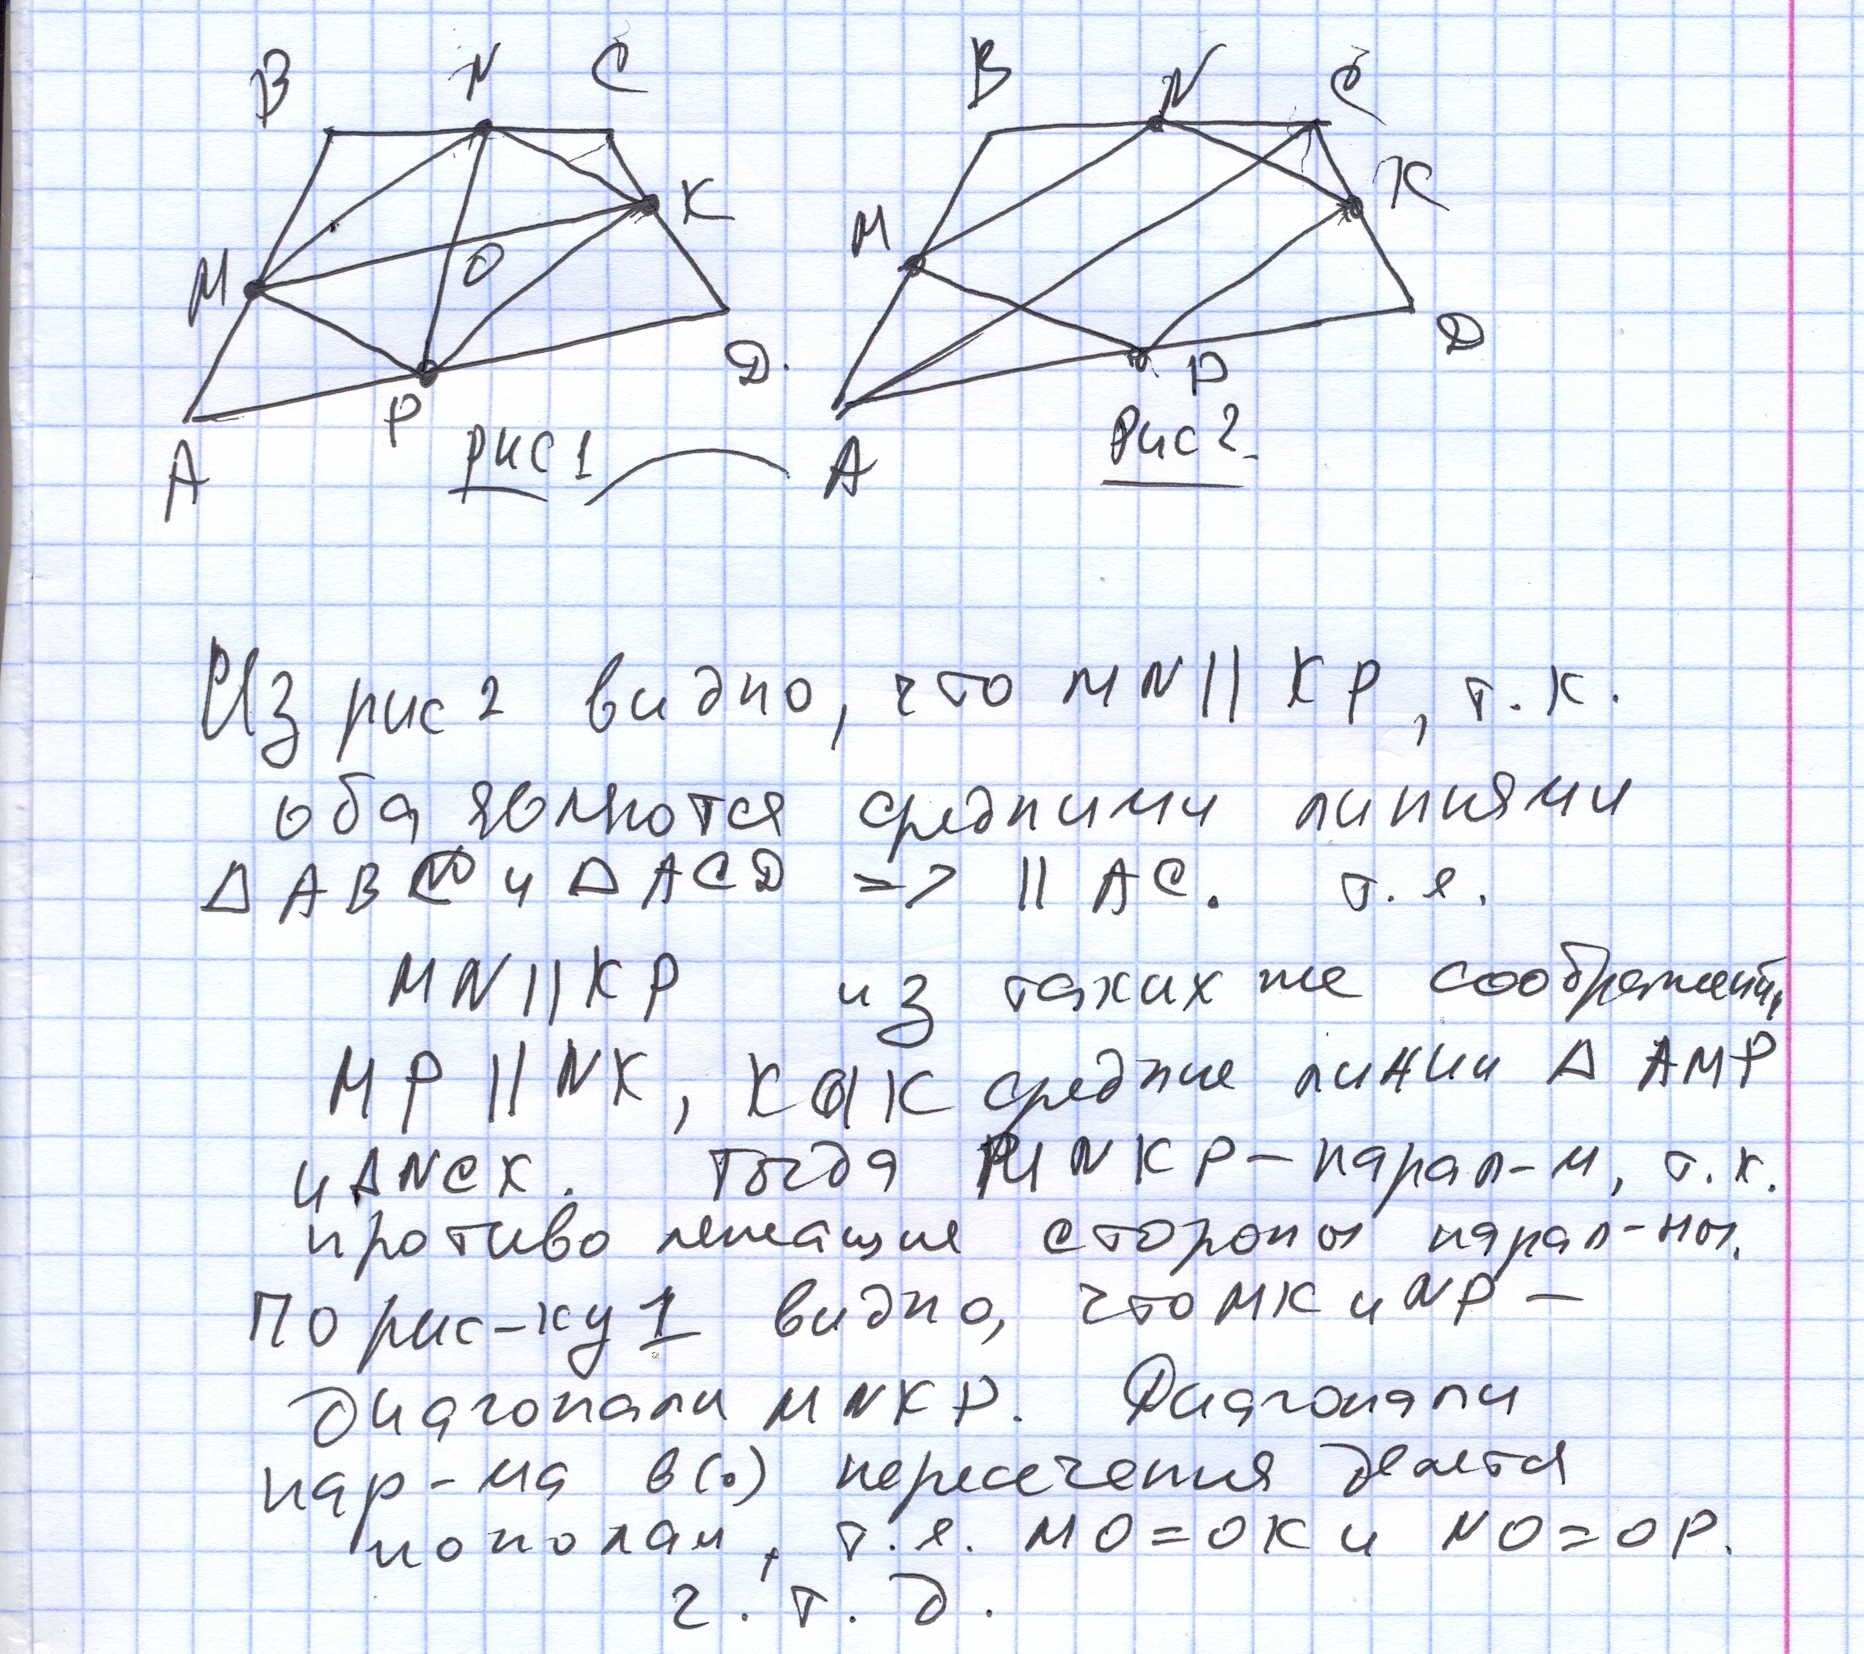 B N C B N C
M O K M K
A P D. A P D
рис 1 Рис 2
Из рис 2 видно, что MN || KP, т.к.
оба являются средними линиями
Δ ABC и Δ ACD => || AC. т.е.
MN || KP из таких же соображений,
MP || NK, как средние линии Δ AMP
и ΔNCK. Тогда MNKP - парал-м, т.к.
противолежащие стороны парал-ны.
По рис-ку 1 видно, что MK и NP -
диагонали MNKP. Диагонали
пар-ма в (.) пересечения делятся
пополам, т.е. MO=OK и NO=OP.
ч.т.д.